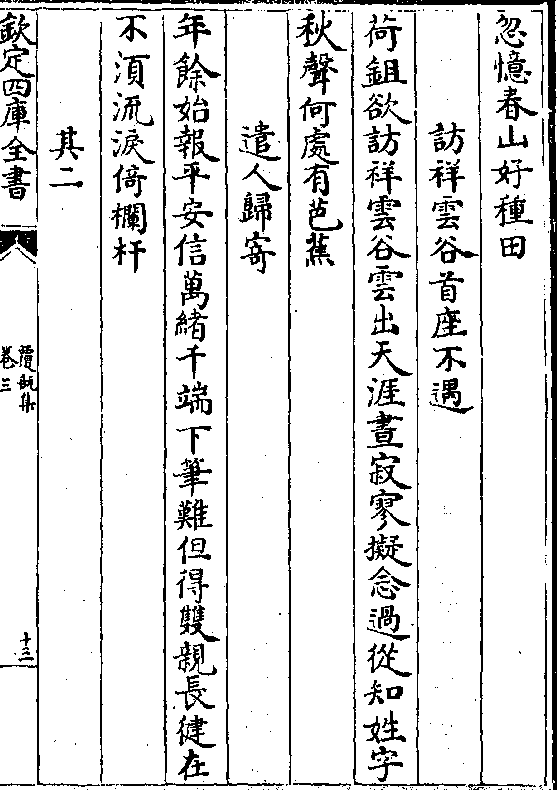 忽憶春山好種田
訪祥雲谷首座不遇
荷鉏欲訪祥雲谷雲出天涯晝寂寥擬念過從知姓字
秋聲何處有芭蕉
遣人歸寄
年餘始報平安信萬緒千端下筆難但得雙親長健在
不須流淚倚欄杆
其二
欽定四庫全書
覆瓿集
卷三
十三